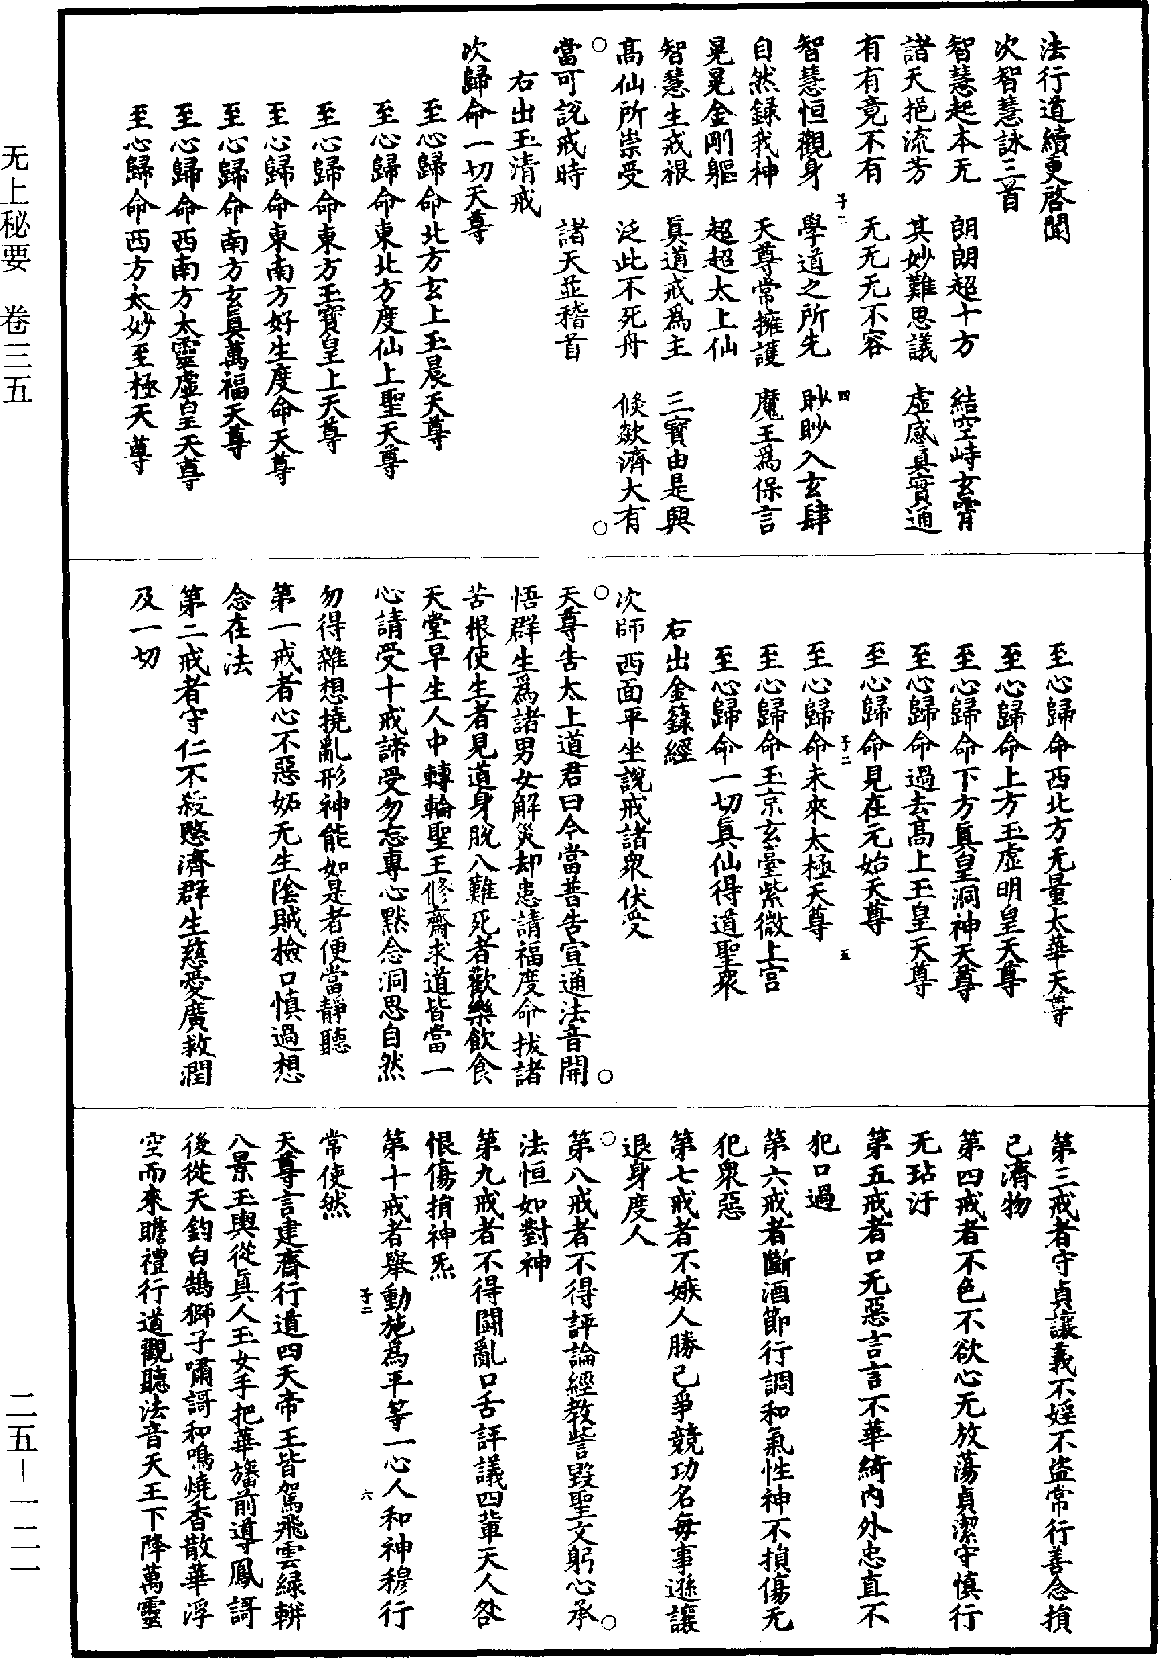 无上秘要　卷三五
二五—一二一
法行道續更啓聞
次智慧詠三首
智慧起本无　朗朗超十方　結空峙玄霄
諸天挹流芳　其妙難思議　虛感真實通
有有竟不有　无无无不容
子二　四
智慧恒觀身　學道之所先　眇眇入玄肆
自然錄我神　天尊常擁護　魔王爲保言
晃晃金剛軀　超超太上仙
智慧生戒根　眞道戒爲主　三寶由是興
高仙所崇受　泛此不死舟　倏欻濟大有
當可說戒時　諸天並稽首
右出玉清戒
次歸命一切天尊
至心歸命北方玄上玉晨天尊
至心歸命東北方度仙上聖天尊
至心歸命東方玉寶皇上天尊
至心歸命東南方好生度命天尊
至心歸命南方玄眞萬福天尊
至心歸命西南方太靈虛皇天尊
至心歸命西方太妙至極天尊
至心歸命西北方无量太華天尊
至心歸命上方玉虛明皇天尊
至心歸命下方眞皇洞神天尊
至心歸命過去高上玉皇天尊
至心歸命見在元始天尊
子二　五
至心歸命未來太極天尊
至心歸命玉京玄臺紫微上宮
至心歸命一切眞仙得道聖衆
右出金籙經
次師西面平坐說戒諸衆伏受
天尊告太上道君曰今當普告宣通法音開
悟群生爲諸男女解災却患請福度命拔諸
苦根使生者見道身脫八難死者歡樂飲食
天堂早生人中轉輪聖王修齋求道皆當一
心請受十戒諦受勿忘專心默念洞思自然
勿得雜想撓亂形神能如是者便當靜聽
第一戒者心不惡妬无生陰賊檢口慎過想
念在法
第二戒者守仁不殺愍濟群生慈愛廣救潤
及一切
第三戒者守貞讓義不婬不盜常行善念損
已濟物
第四戒者不色不欲心无放蕩貞潔守慎行
无玷汙
第五戒者口无惡言言不華綺內外忠直不
犯口過
第六戒者斷酒節行調和氣性神不損傷无
犯衆惡
第七戒者不嫉人勝已爭競功名每事遜讓
退身度人
第八戒者不得評論經教訾毀聖文躬心承
法恒如對神
第九戒者不得鬪亂口舌評議四輩天人咎
恨傷損神炁
第十戒者舉動施爲平等一心人和神穆行
子二　六
常使然
天尊言建齋行道四天帝王皆駕飛雲綠軿
八景玉輿從眞人玉女手把華旛前導鳳謌
後從天鈞白鵠獅子嘯謌和鳴燒香散華浮
空而來瞻禮行道觀聽法音天王下降萬靈